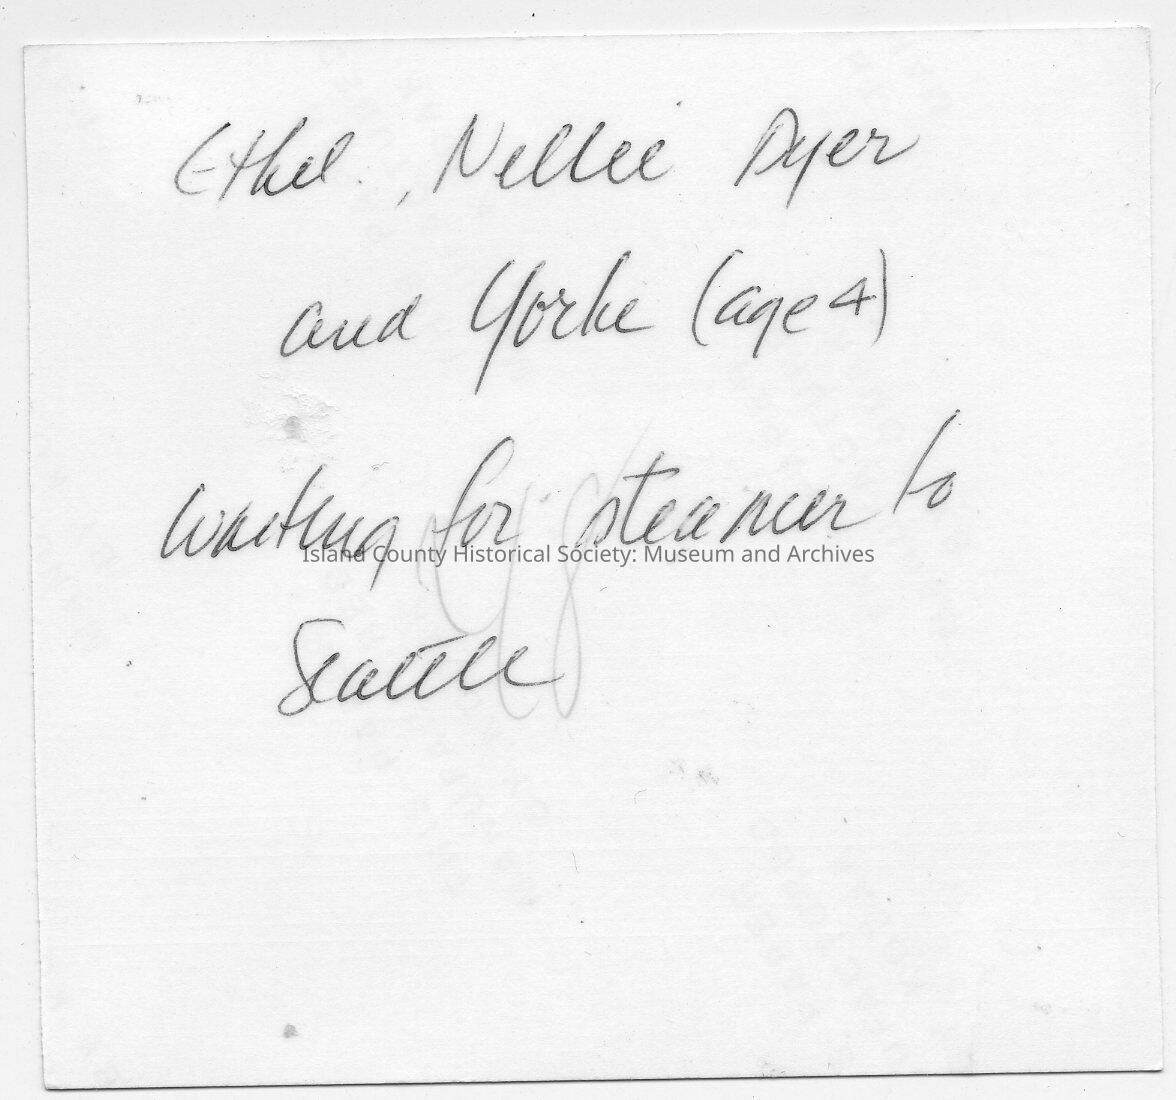 Ethel, Nellie Dyer
and Yorke (age 4)
waiting for steamer to
Island County Historical Society: Museum and Archives
Seattle